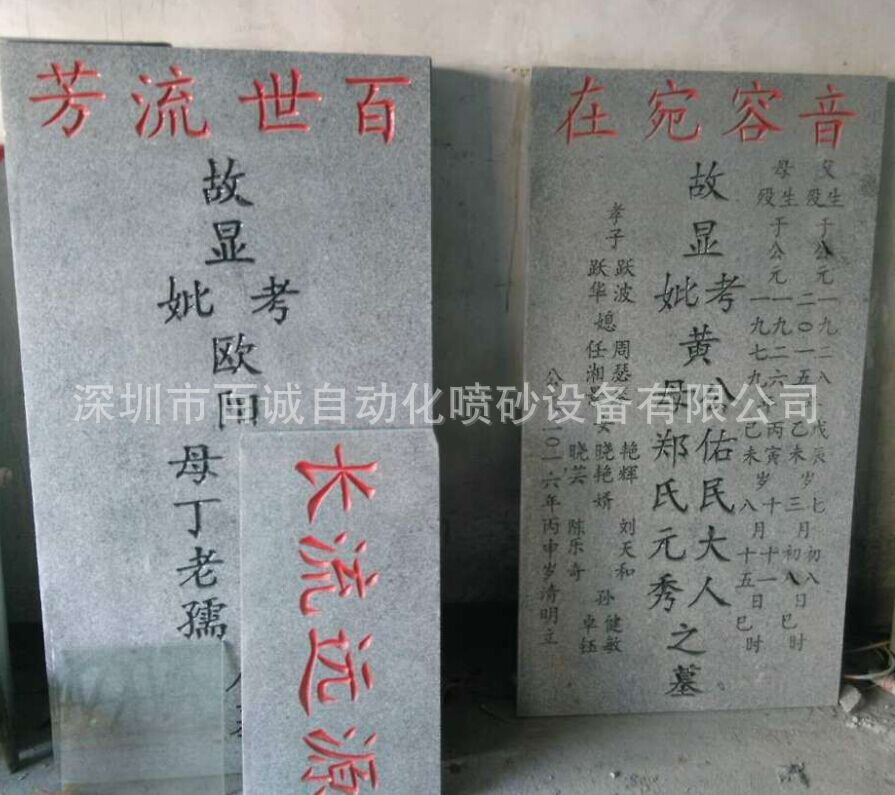 芳流世百
故
显
妣考
欧
阳
母丁老孺
长流远源
在宛容音
父生于公元一九二八
戊辰
七月初八日巳时
殁
二〇一五
乙未岁三月初八日巳时
母生于公元一九二六
丙寅岁十月十一日
时
殁
一九七九
己未岁八月十五日巳
故
显
妣考
黄
公佑民大人
母郑氏元秀
之
墓
孝子
跃波
跃华
媳
周瑟
任湘
女
晓艳
艳辉
晓芸
婿
刘天和
陈乐奇
孙
健敏
卓钰
公
二〇一六年丙申岁清明立
深圳市百诚自动化喷砂设备有限公司